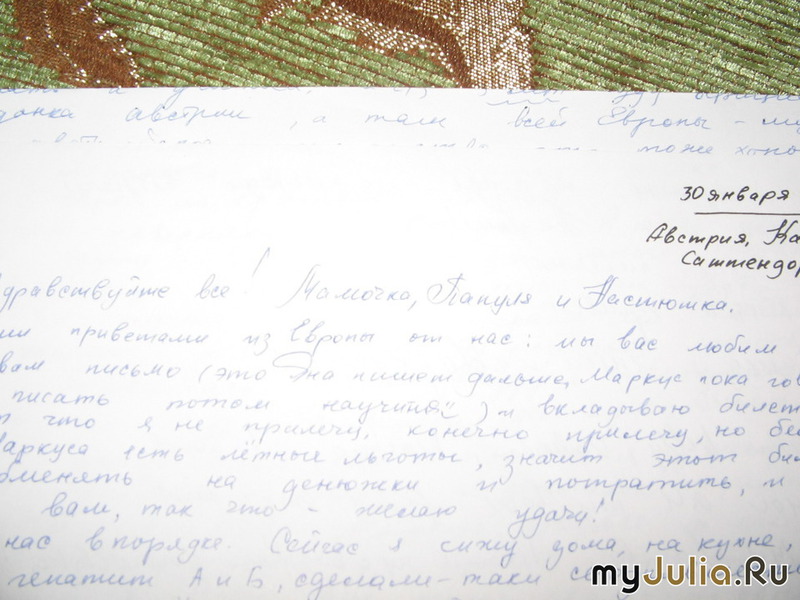 донка австрии, а там всей Европы -
може
30 января
Австрия, Ка
Саттендор
Здравствуйте все! Мамочка, Папуля и Настюшка.
ии приветами из Европы от нас: мы вас любим
вам письмо (это Яна пишет дальше, Маркус пока гов
писать потом научится) и вкладываю билет
т что я не прилечу, конечно прилечу, но
Маркуса есть лётные льготы, значит этот бил
бменять на денюжки и потратить, и
вам, так что - желаю удачи!
нас в порядке. Сейчас я сижу дома, на кухне,
гепатит А и Б, сделали-таки
myJulia.Ru